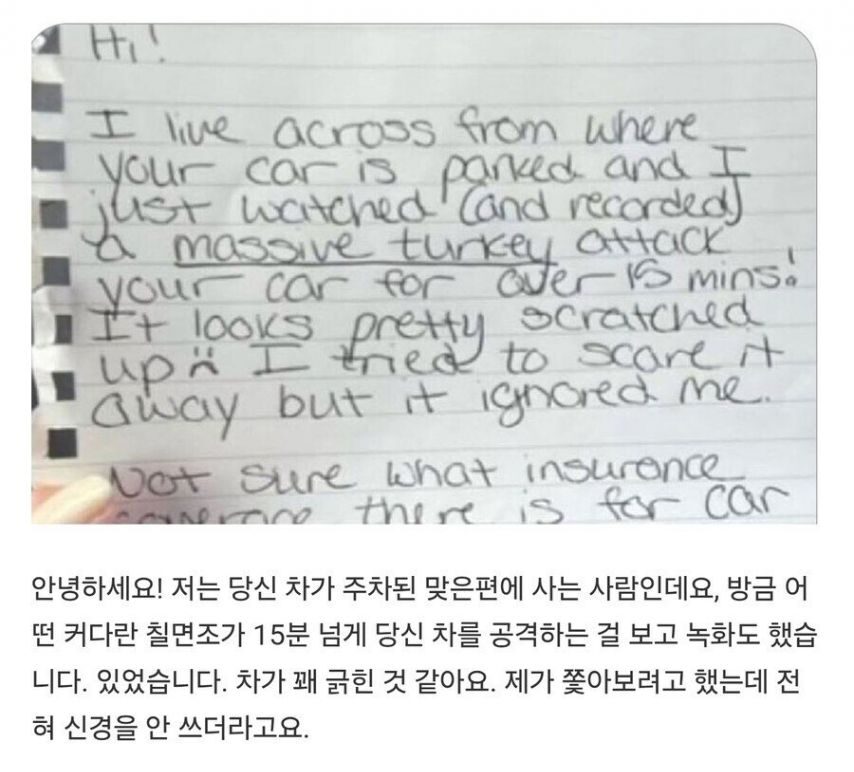 Hi!
I live across from where
your car is parked and I
just watched (and recorded)
a massive turkey attack
your car for over 15 mins!
It looks pretty scratched
up :( I tried to scare it
away but it ignored me.
Not sure what insurance
coverage there is for car
안녕하세요! 저는 당신 차가 주차된 맞은편에 사는 사람인데요, 방금 어
떤 커다란 칠면조가 15분 넘게 당신 차를 공격하는 걸 보고 녹화도 했습
니다. 있었습니다. 차가 꽤 긁힌 것 같아요. 제가 쫓아보려고 했는데 전
혀 신경을 안 쓰더라고요.